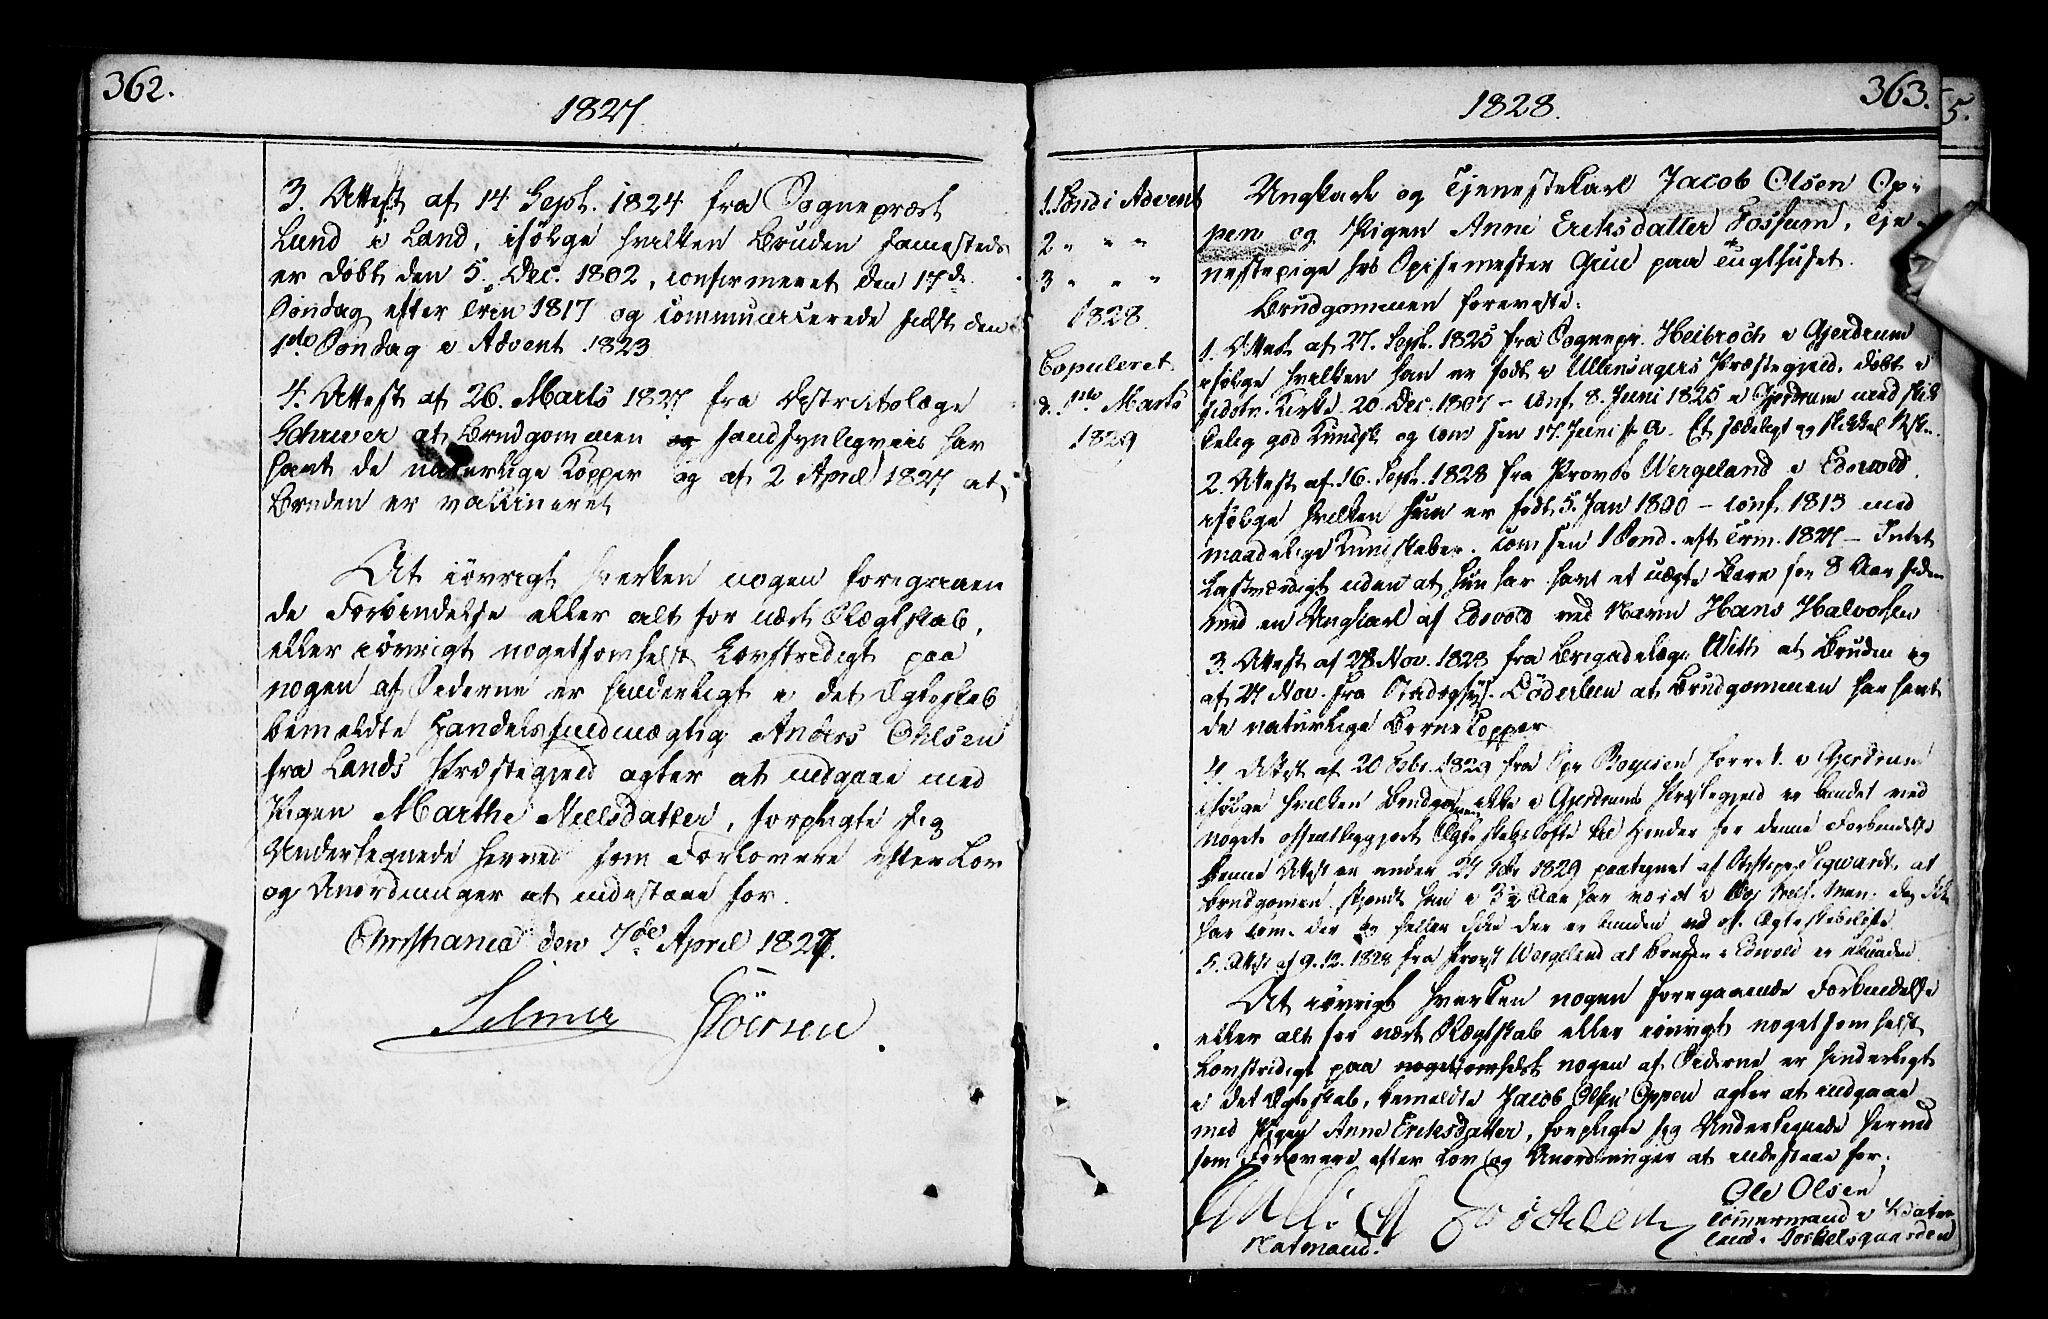 362.
1827
3. Attest af 14 Sept. 1824 fra Sognepræst
Lund i Land, ifølge hvilken Bruden sammesteds
er døbt den 5. Dec. 1802, confirmeret den 17de
Søndag efter Trin 1817 og communicerede sidst den
1ste Søndag i Advent 1823
4. Attest af 26. Marts 1827 fra Districtslæge
Schriver at Brudgommen og sandsynligviis har
havt de naturlige Kopper og af 2 April 1827 at
Bruden er vaccineret
At iøvrigt hverken nogen foregaaen
de Forbindelse eller alt for nært Slægtskab,
eller iøvrigt nogetsomhelst Lovstridigt paa
nogen af Siderne er hinderligt i det Ægteskab
bemeldte Handelsfuldmægtig Anders Ohlsen
fra Lands Præstegjeld agter at indgaae med
Pigen Marthe Nielsdatter, forpligte sig
Undertegnede herved som Forlovere efter Lov
og Anordninger at indestaae for.
Christiania den 7de April 1827.
Selmer
363.
5.
1828.
1. Sønd i Advent
2 " " "
3 " " "
1828.
Copuleret
d. 1ste Marts
1829
Ungkarl og Tjenestekarl Jacob Olsen Op-
pen og Pigen Anne Eriksdatter Fossum, Tje-
nestepige hos Spisemester Gun paa Tugthuset.
Brudgommen foreviste:
1. Attest af 27. Sept. 1825 fra Sognepr. Heibroch i Gjerdrum
ifølge hvilken han er født i Ullinsagers Præstegjeld, døbt i
Kirke 20 Dec. 1807 - conf. 8. Juni 1825 i Gjerdrum med skik
kelig god Kundsk. og com sen 17. Juni s. A. Et sædeligt og skikkel. Msk.
2. Attest af 16. Sept. 1828 fra Provst Wergeland i Edsvold
ifølge hvilken hun er født 5. Jan 1800 - conf. 1815 med
maadelige Kundskaber. com sen 1 Sønd. eft Trin. 1827 - Intet
Lastværdigt uden at hun har havt et uægte Barn for 8 Aar siden
med en Ungkarl af Edsvold ved Navn Hans Halvorsen
3. Attest af 28 Nov. 1828 fra Brigadelæge With at Bruden og
af 27 Nov. fra Stadsphys. Döderlein at Brudgommen har havt
de naturlige Børnekopper
4. Attest af 20 Febr. 1829 fra i Gjerdrum
ifølge hvilken Brudgommen ikke i Gjerdrums Præstegjeld er bundet ved
noget offentliggjort Ægteskabsløfte til Hinder for denne Forbindelse
denne Attest er under 27 Febr 1829 paategnet af at
Brudgommen skjøndt han i 3½ Aar har været i
har com. der heller ikke der er bunden ved off. Ægteskabsløfte
5. Attest af 9. 12. 1828 fra Provst Wergeland at Bruden i Edsvold er ubunden
At iøvrigt hverken nogen foregaaende Forbindelse
eller alt for nært Slægtskab eller iøvrigt nogetsomhelst
Lovstridigt paa nogetsomhelst nogen af Siderne er hinderligt
i det Ægteskab, bemeldte Jacob Olsen Oppen agter at indgaae
med Pigen Anne Eriksdatter, forpligte sig Undertegnede herved
som Forlovere efter Lov og Anordninger at indestaae for.
Ole Olsen
Tømmermand i